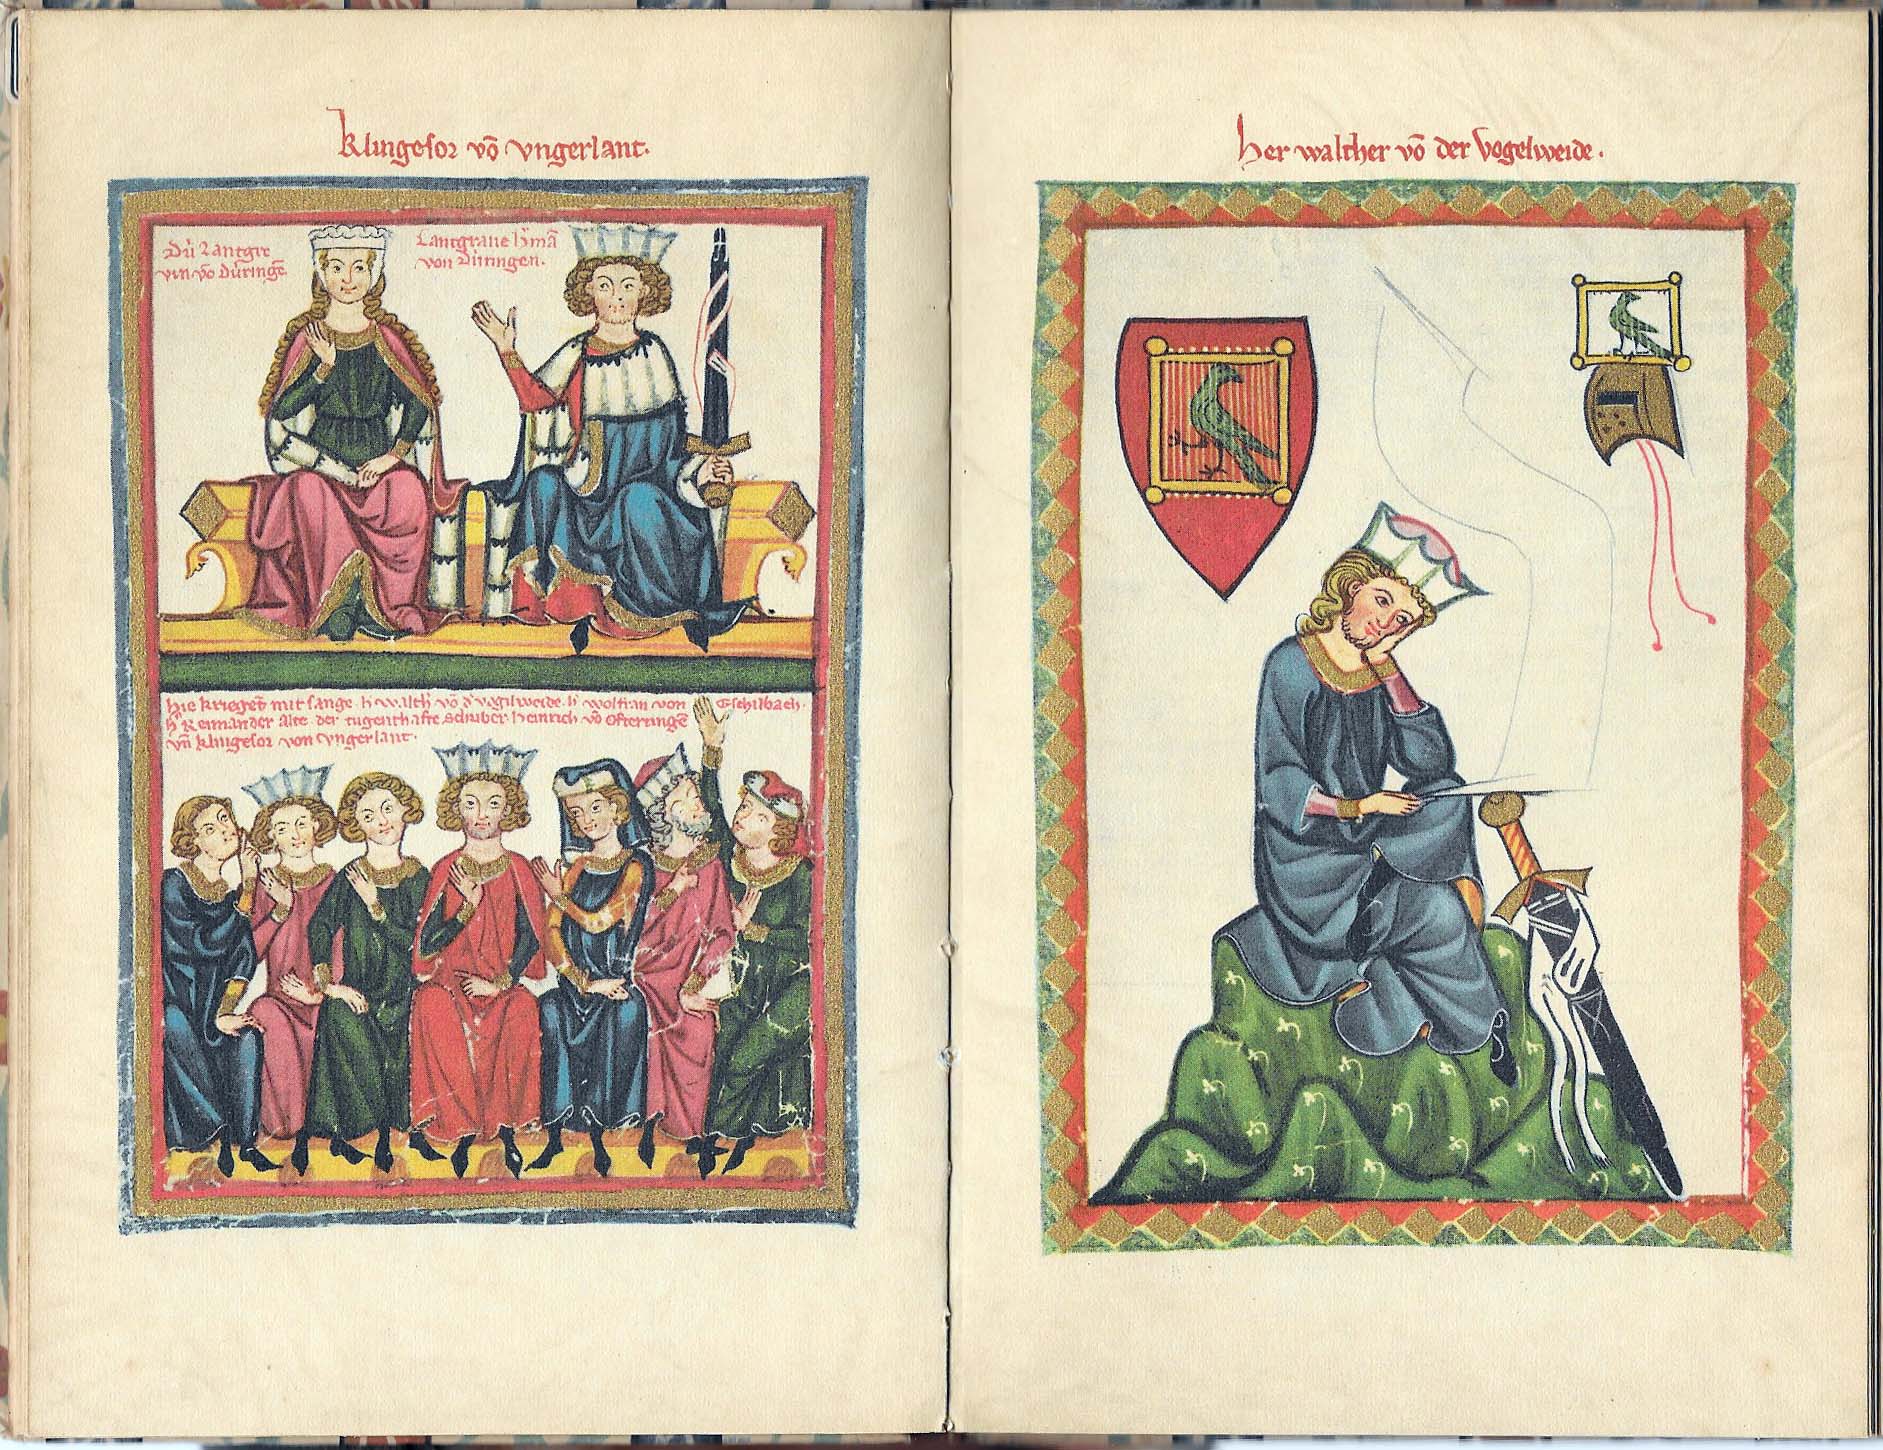 Klingesor vō vngerlant.
Dú Lantgre
vin vō Dúringē
Lantgraue h'mā
von Dúringen.
Hie krieget mit sange. h' walth' vō d' vogilweide. h' wolfran von Eschilbach.
h' Reimander alte. der tugenthafte Schriber. heinrich vō Ofteringē
vn̄ klingesor von vngerlant.
her walther vō der Vogelweide.